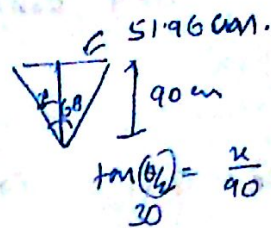 51.96 cm.
90 cm
tan(θ/2) = x/90
30